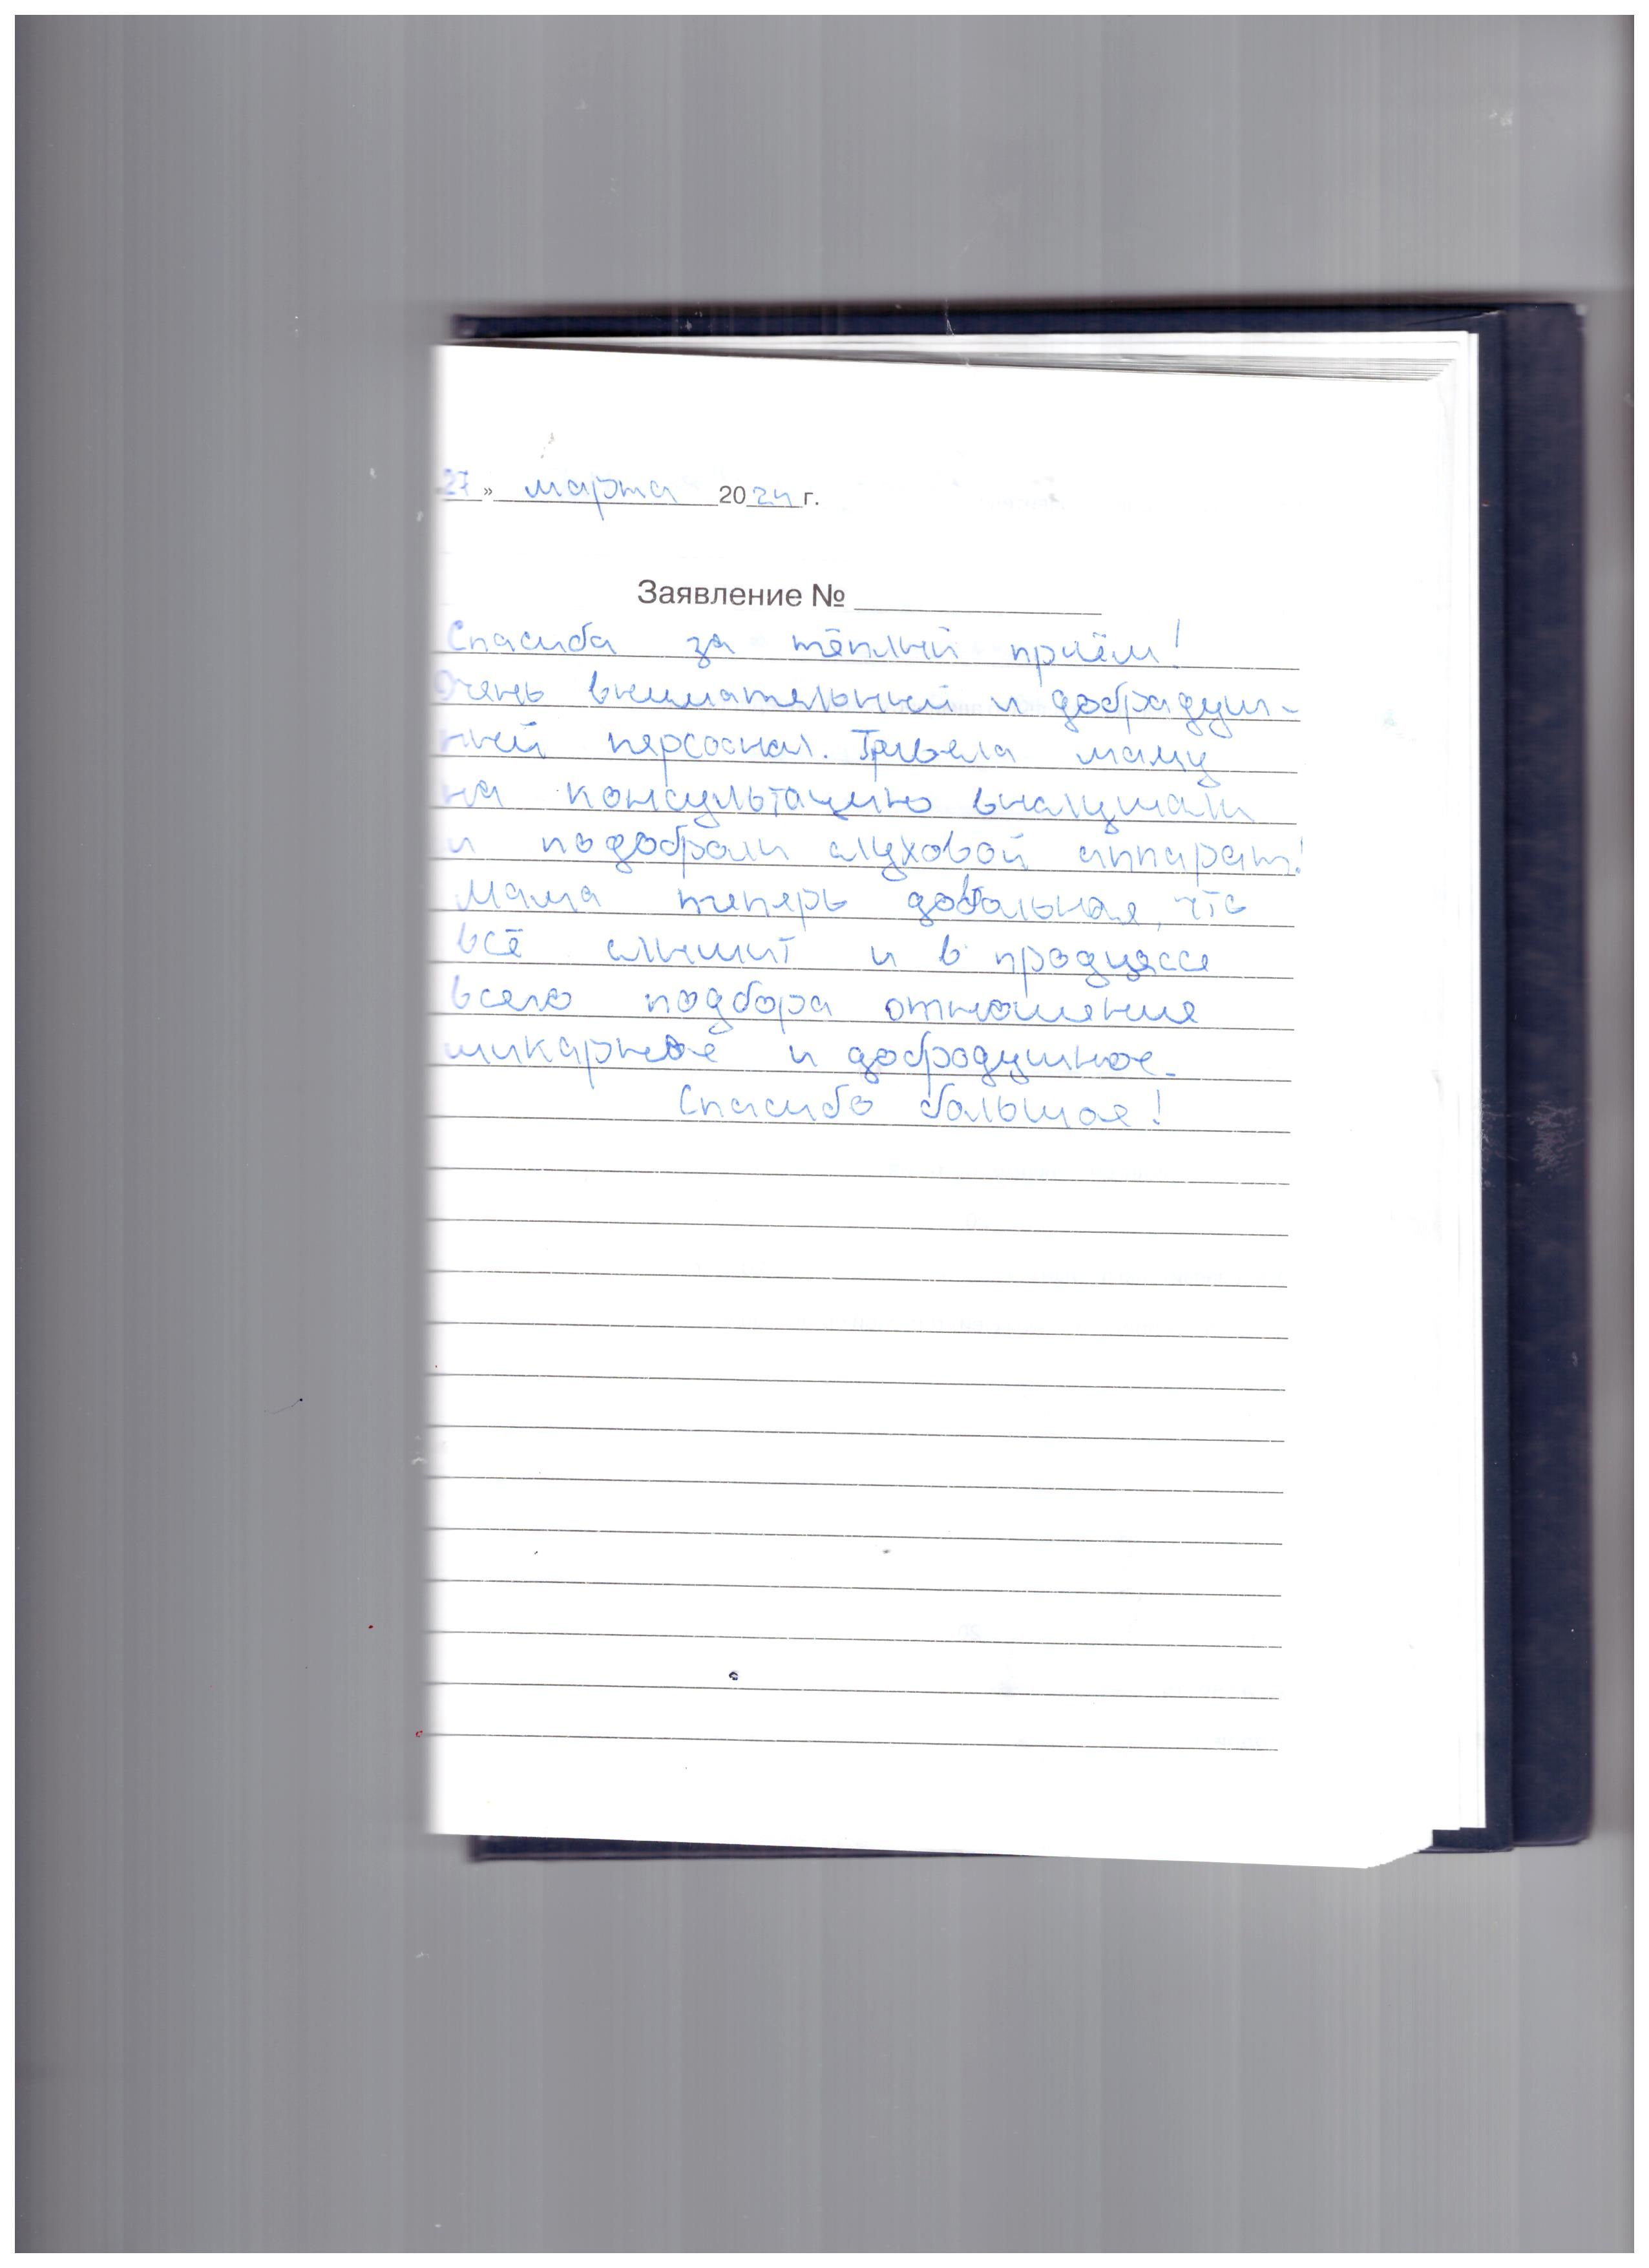 27 » марта 2024 г.
Заявление №
Спасиба за тёплый приём!
Очень внимательный и добрадуш-
ный персоонал. Привела маму
на консультацию внлушали
и подобрали слуховой аппарат!
Мама теперь довольная, что
всё слышит и в процессе
всего подбора отношение
шикарное и добродушное.
Спасибо большое!